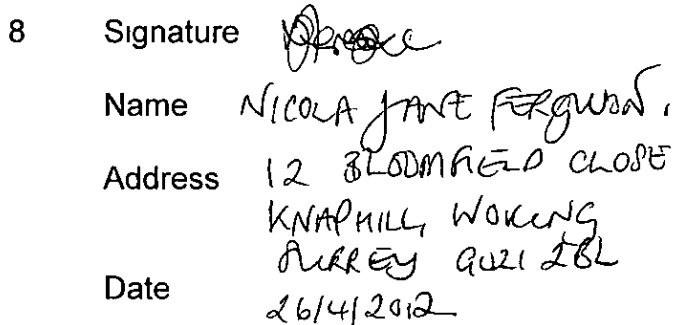 8 Signature
Name NICOLA JANE FERGUSON.
Address 12 BLOOMFIELD CLOSE
KNAPHILL, WOKING
SURREY GU21 2BL
Date 26/4/2012